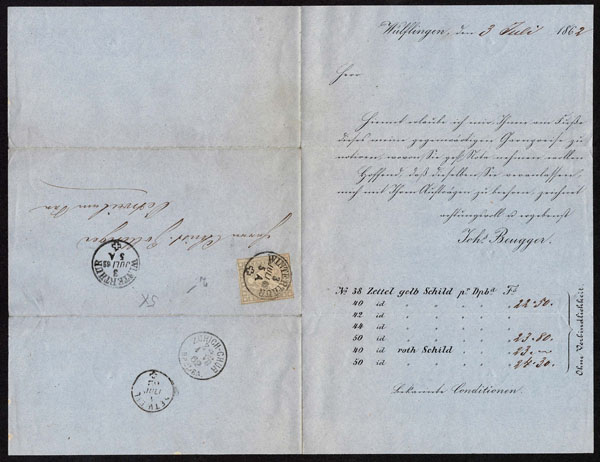 Wülflingen, den 3 Juli 1862
Herr
Hiermit erlaube ich mir Ihnen am Fuße
dieses meine gegenwärtigen Garnpreise zu
notiren, wovon Sie gefl. Note nehmen wollen
Hoffend, daß dieselben Sie veranlassen,
mich mit Ihren Aufträgen zu beehren zeichnet
achtungsvoll u. ergebenst
Johs. Beugger.
No. 38 Zettel gelb Schild pr. Dpbd. Fs. 22.50.
40 id " " "
42 id " " "
44 id " " "
50 id " " " 23.80.
40 id roth Schild " " 23.—
50 id " " " 24.30.
Ohne Verbindlichkeit
Bekannte Conditionen.
Herrn
WINTERTHUR
3
JULI 62
5 A
WINTERTHUR
3
JULI 62
5 A
5x
ZÜRICH-CHUR